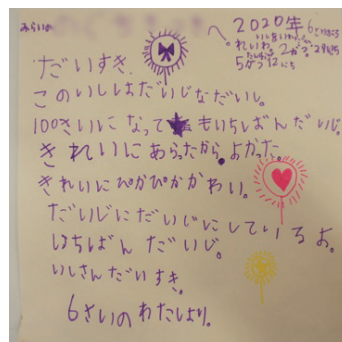 みらいの
へ。
2020年 6さいのころ
だいすき、
このいしはだいじなだいし。
100さいになって もいちばんだいじ。
きれいにあらったから。よかった。
きれいにぴかぴかかわい。
だいじにだいじにしているよ。
はちばん だいじ。
いしさんだいすき。
6さいのわたしより。